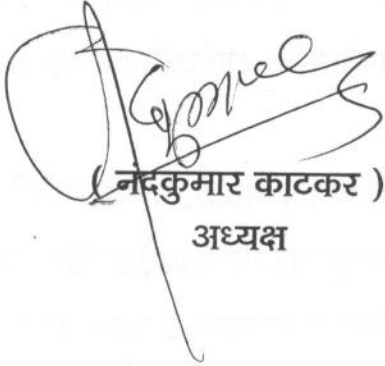 ( नंदकुमार काटकर )
अध्यक्ष